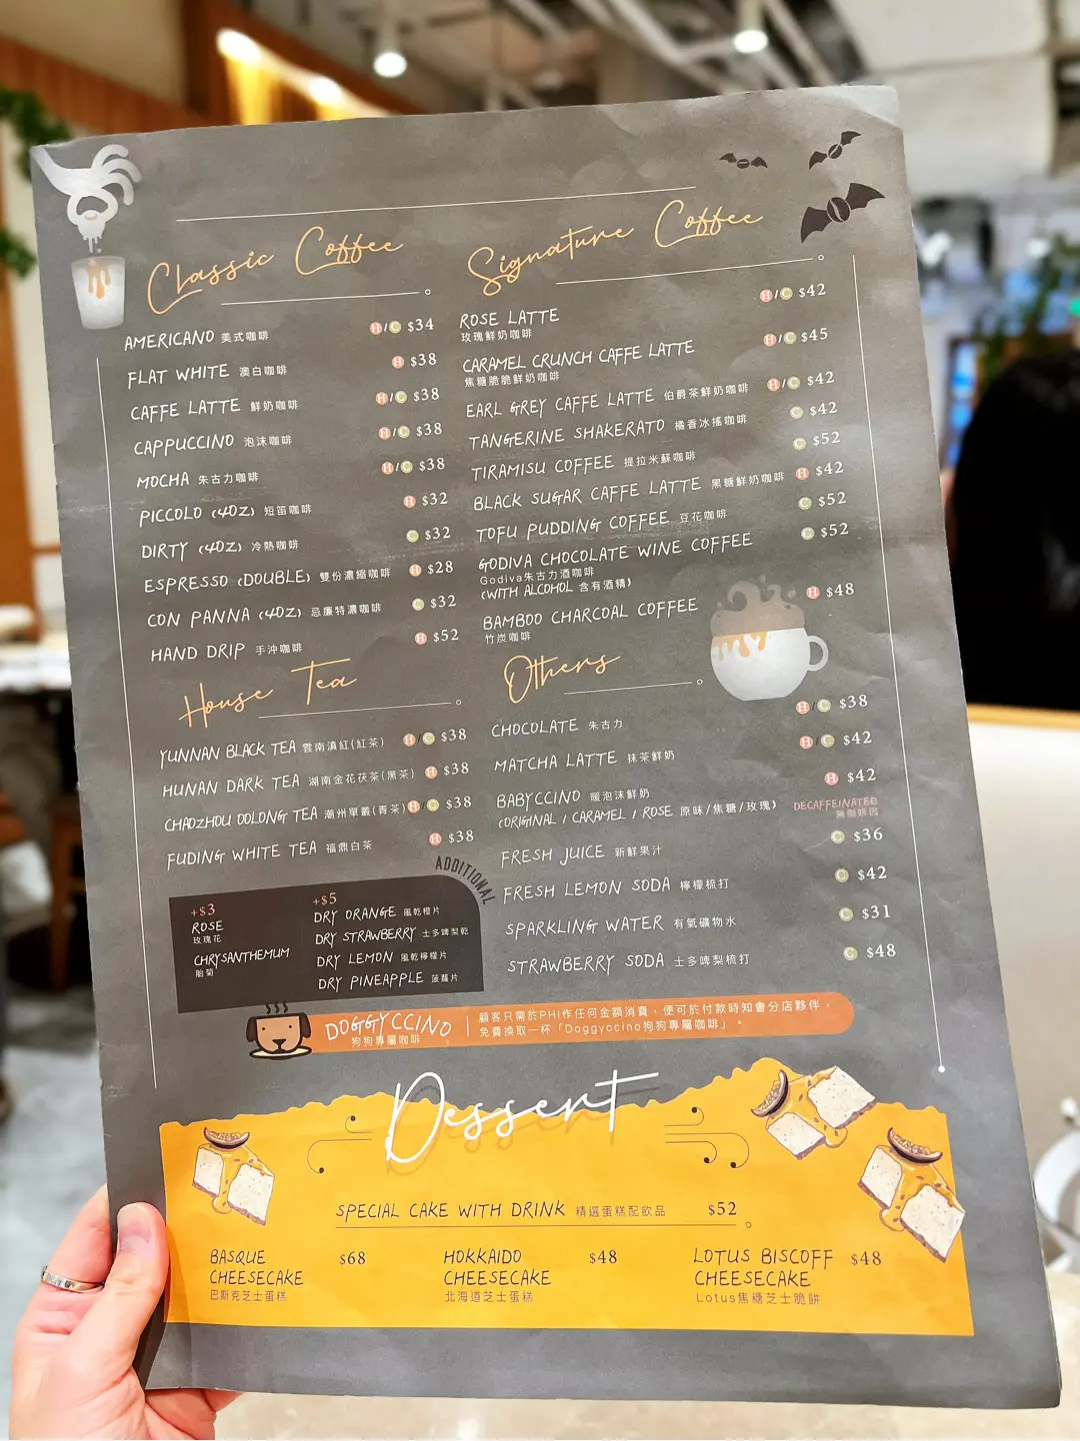 Classic Coffee
AMERICANO 美式咖啡 H/C $34
FLAT WHITE 澳白咖啡 H $38
CAFFE LATTE 鮮奶咖啡 H/C $38
CAPPUCCINO 泡沫咖啡 H/C $38
MOCHA 朱古力咖啡 H/C $38
PICCOLO (4OZ) 短笛咖啡 H $32
DIRTY (4OZ) 冷熱咖啡 C $32
ESPRESSO (DOUBLE) 雙份濃縮咖啡 H $28
CON PANNA (4OZ) 忌廉特濃咖啡 C $32
HAND DRIP 手沖咖啡 H $52
Signature Coffee
ROSE LATTE H/C $42
玫瑰鮮奶咖啡
CARAMEL CRUNCH CAFFE LATTE H/C $45
焦糖脆脆鮮奶咖啡
EARL GREY CAFFE LATTE 伯爵茶鮮奶咖啡 H/C $42
TANGERINE SHAKERATO 橘香冰搖咖啡 C $42
TIRAMISU COFFEE 提拉米蘇咖啡 C $52
BLACK SUGAR CAFFE LATTE 黑糖鮮奶咖啡 H $42
TOFU PUDDING COFFEE 豆花咖啡 C $52
GODIVA CHOCOLATE WINE COFFEE C $52
Godiva朱古力酒咖啡
(WITH ALCOHOL 含有酒精)
BAMBOO CHARCOAL COFFEE H $48
竹炭咖啡
House Tea
YUNNAN BLACK TEA 雲南滇紅(紅茶) H/C $38
HUNAN DARK TEA 湖南金花茯茶(黑茶) H $38
CHAOZHOU OOLONG TEA 潮州單叢(青茶) H/C $38
FUDING WHITE TEA 福鼎白茶 H $38
ADDITIONAL
+$3
ROSE
玫瑰花
CHRYSANTHEMUM
胎菊
+$5
DRY ORANGE 風乾橙片
DRY STRAWBERRY 士多啤梨乾
DRY LEMON 風乾檸檬片
DRY PINEAPPLE 菠蘿片
Others
CHOCOLATE 朱古力 H/C $38
MATCHA LATTE 抹茶鮮奶 H/C $42
BABYCCINO 暖泡沫鮮奶 H $42
(ORIGINAL / CARAMEL / ROSE 原味/焦糖/玫瑰) DECAFFEINATED
無咖啡因
FRESH JUICE 新鮮果汁 C $36
FRESH LEMON SODA 檸檬梳打 C $42
SPARKLING WATER 有氣礦物水 C $31
STRAWBERRY SODA 士多啤梨梳打 C $48
DOGGYCCINO
狗狗專屬咖啡
顧客只需於PHI作任何金額消費，便可於付款時知會分店夥伴，
免費換取一杯「Doggyccino狗狗專屬咖啡」。
Dessert
SPECIAL CAKE WITH DRINK 精選蛋糕配飲品 $52
BASQUE $68
CHEESECAKE
巴斯克芝士蛋糕
HOKKAIDO $48
CHEESECAKE
北海道芝士蛋糕
LOTUS BISCOFF $48
CHEESECAKE
Lotus焦糖芝士脆餅